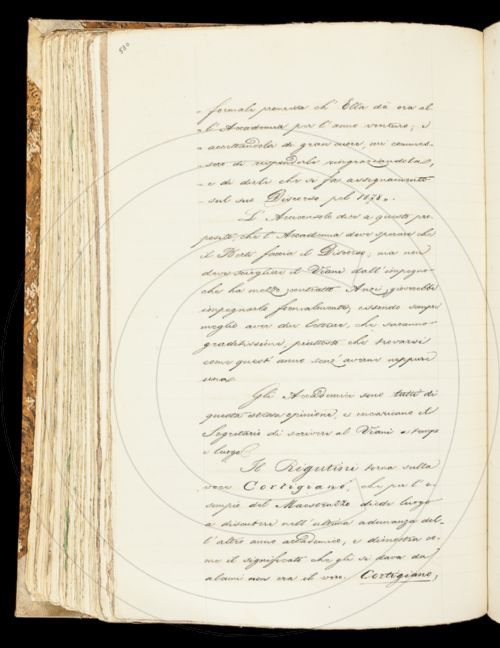 580
„ formale promessa ch' Ella dà ora al
„ l'Accademia per l'anno venturo; e
„ accettandola di gran cuore, mi commes-
„ sero di risponderle ringraziandola,
„ e di dirle che si fa assegnamento
„ sul suo Discorso pel 1878 „.
L'Arciconsolo dice a questo pro-
posito, che l'Accademia deve sperare che
il Berti faccia il Discorso; ma non
deve sciogliere il Viani dall'impegno
che ha contratto. Anzi gioverebbe
impegnarlo formalmente, essendo sempre
meglio aver due lezioni, che saranno
graditissime, piuttosto che trovarsi
come quest'anno senz'averne neppure
una.
Gli Accademici sono tutti di
questa stessa opinione, e incaricano il
Segretario di scrivere al Viani a tempo
e luogo.
Il Rigutini torna sulla
voce Cortigiano, che per l'e-
sempio del Maestruzzo diede luogo
a discutere nell'ultima adunanza del-
l'altro anno accademico, e dimostra co-
me il significato che gli si dava da
alcuni non era il vero. Cortigiano,